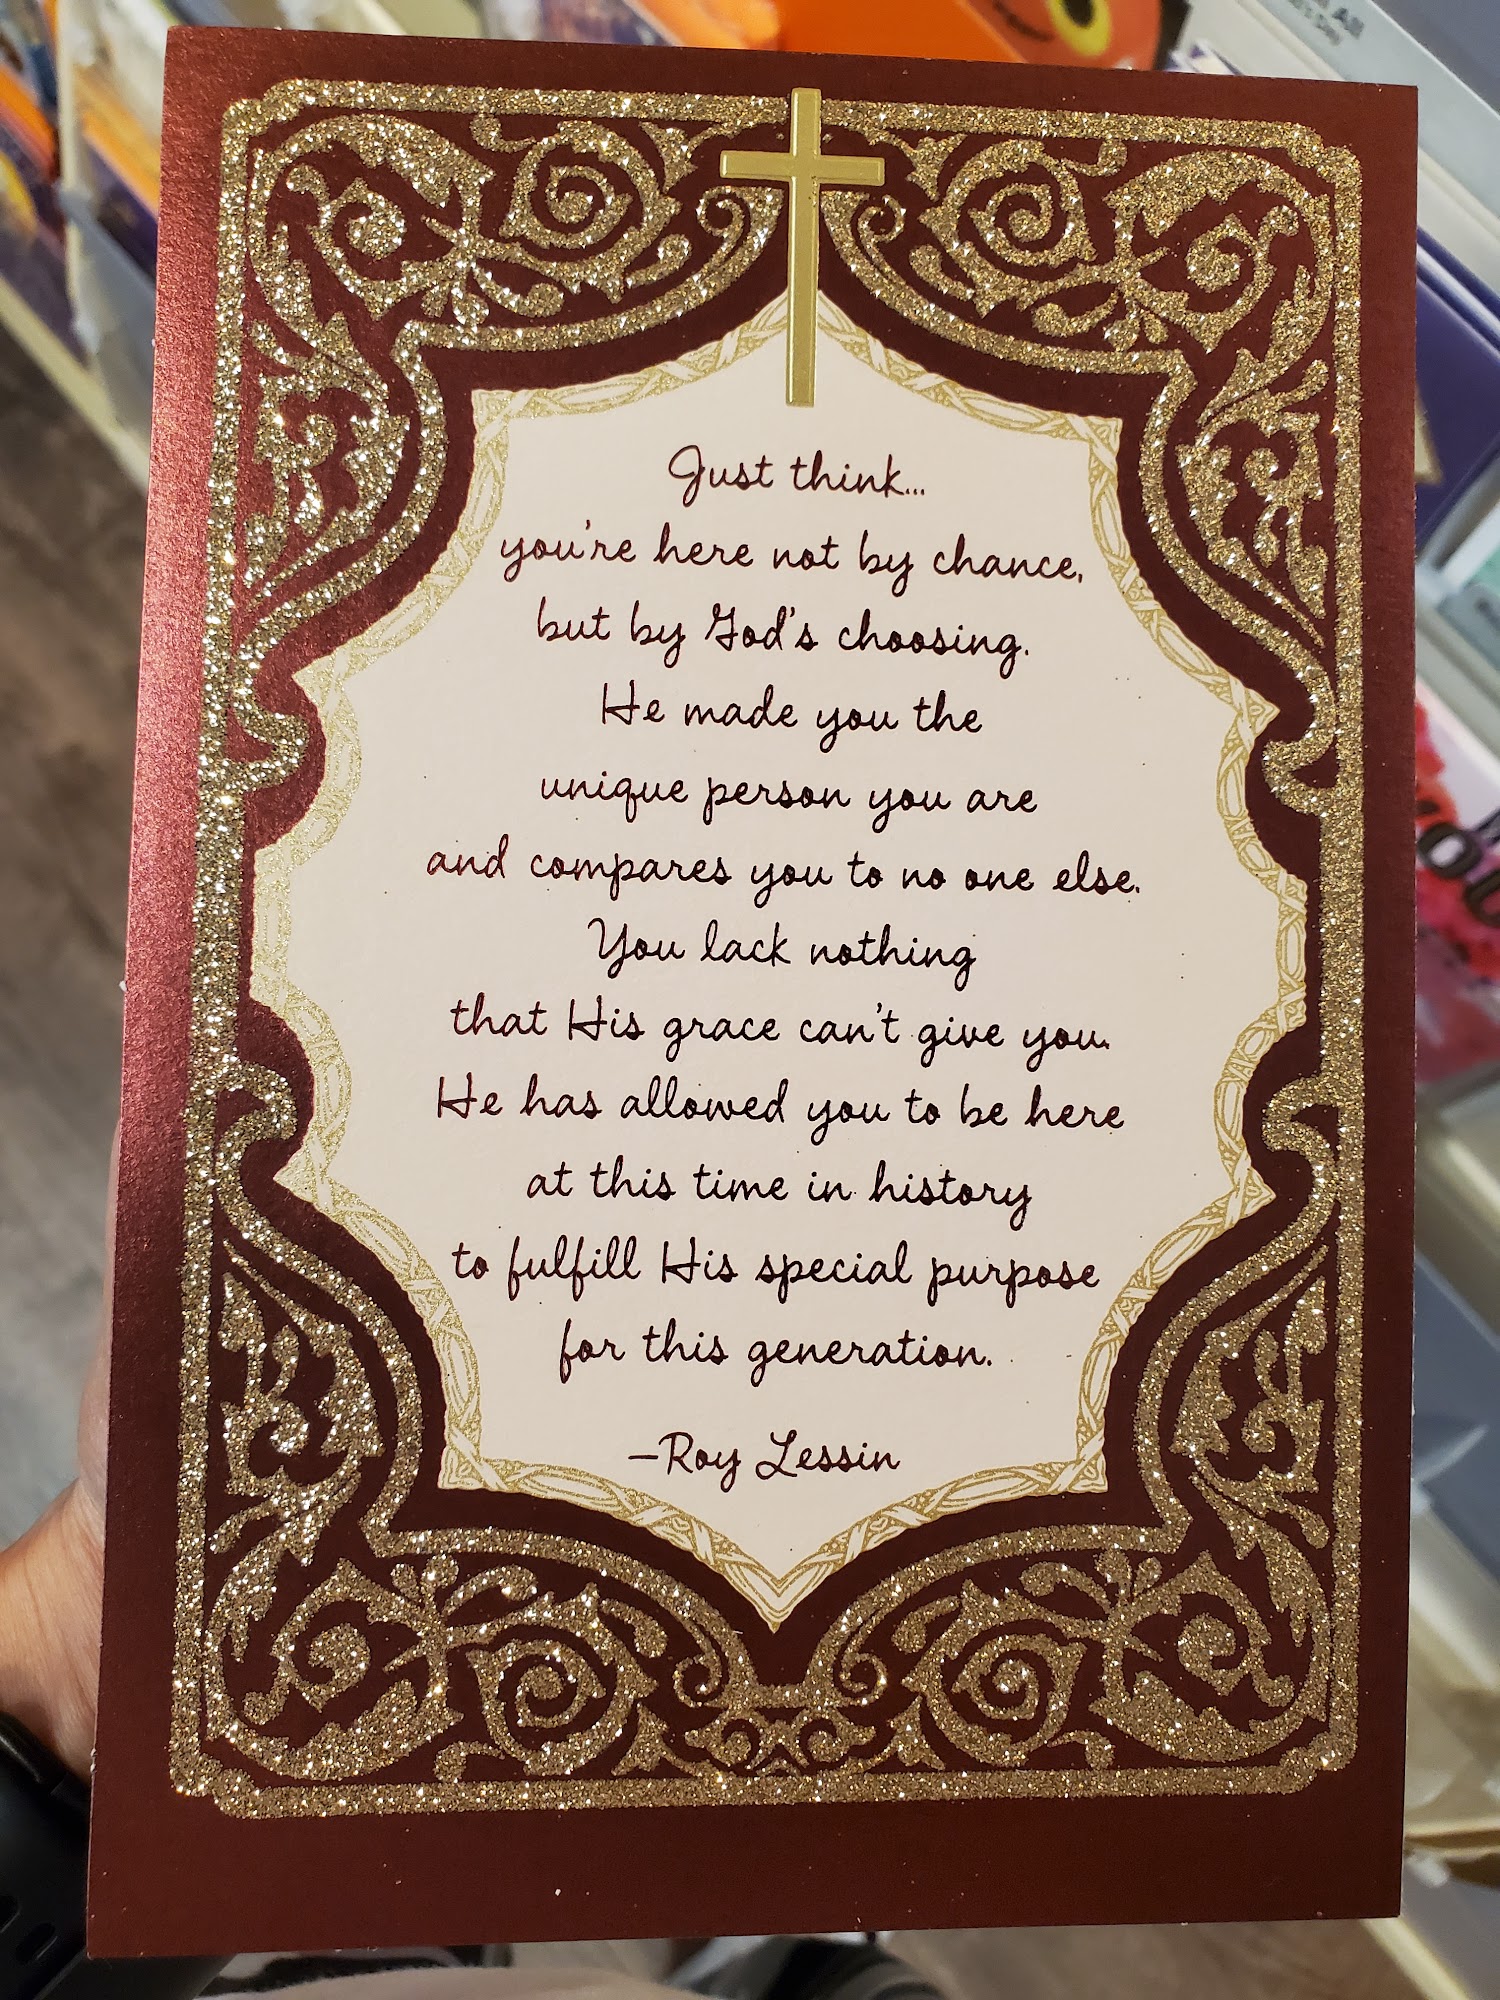 Just think...
you're here not by chance,
but by God's choosing.
He made you the
unique person you are
and compares you to no one else.
You lack nothing
that His grace can't give you.
He has allowed you to be here
at this time in history
to fulfill His special purpose
for this generation.
—Roy Lessin